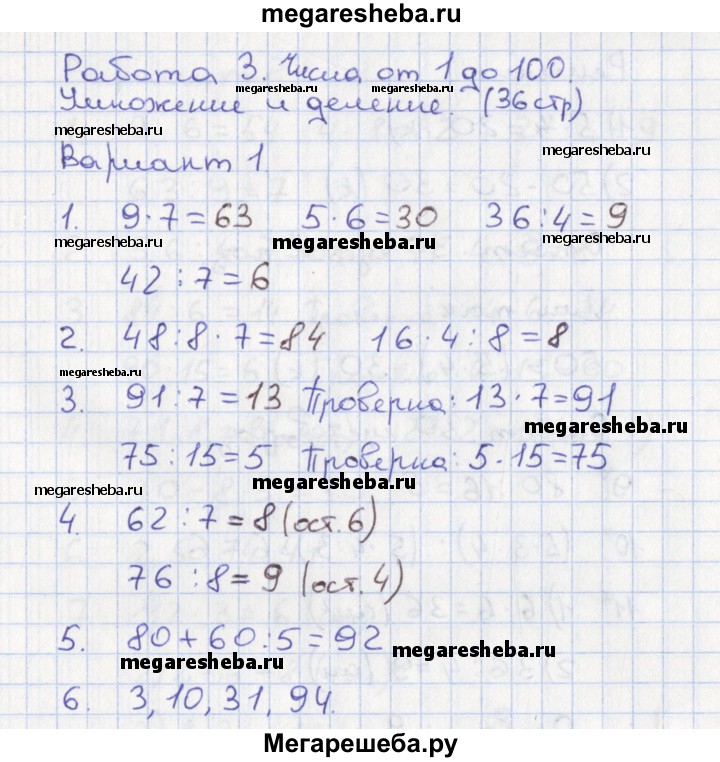 megaresheba.ru
Работа 3. Числа от 1 до 100.
megaresheba.ru megaresheba.ru
Умножение и деление. (36 стр)
megaresheba.ru
megaresheba.ru
Вариант 1.
1. 9·7=63 5·6=30 36:4=9
megaresheba.ru megaresheba.ru megaresheba.ru
42:7=6
2. 48:8·7=84 16·4:8=8
megaresheba.ru
3. 91:7=13 Проверка: 13·7=91
megaresheba.ru
75:15=5 Проверка: 5·15=75
megaresheba.ru megaresheba.ru
4. 62:7=8 (ост. 6)
76:8=9 (ост. 4)
5. 80+60:5=92
megaresheba.ru megaresheba.ru
6. 3, 10, 31, 94.
Мегарешеба.ру